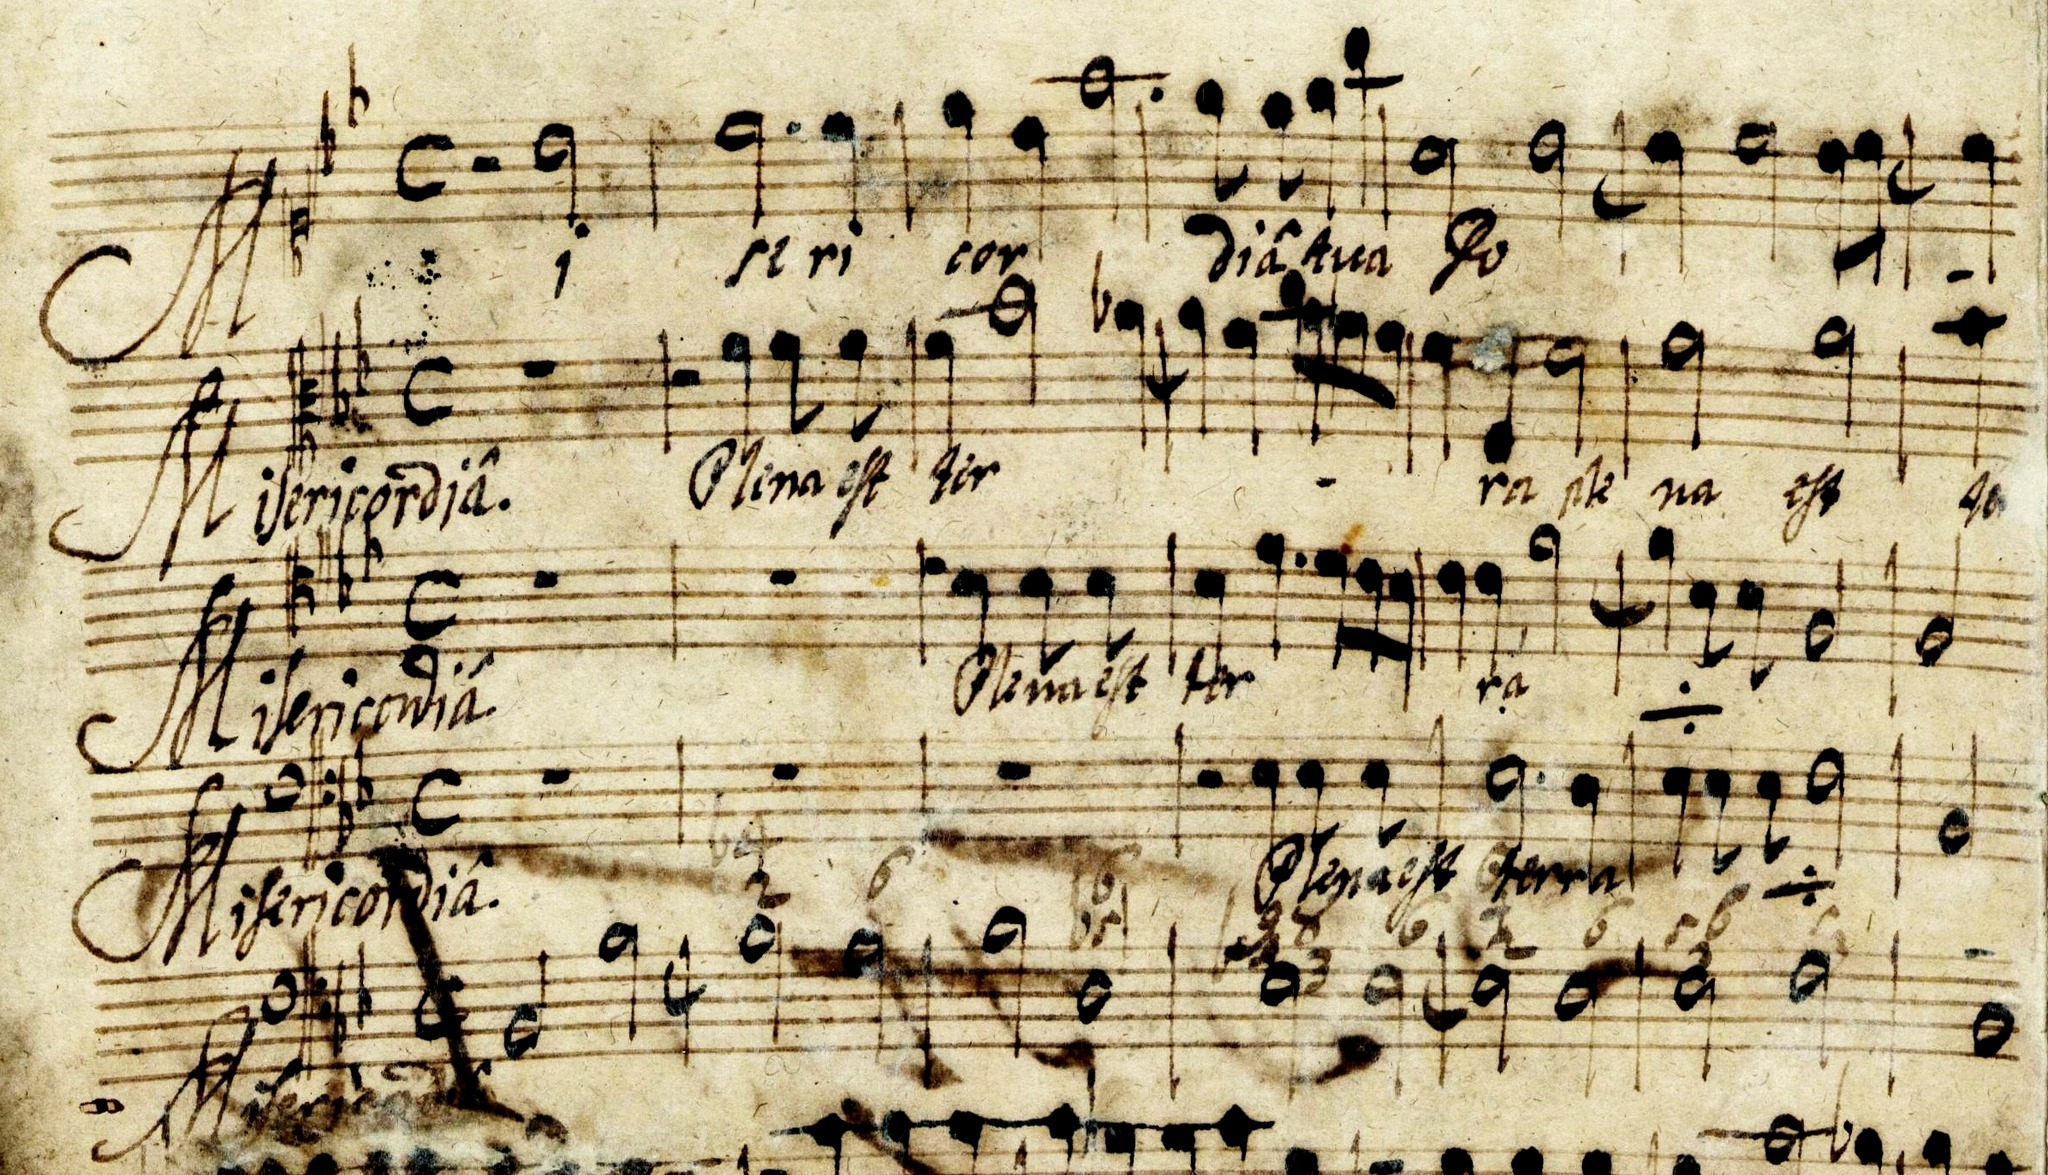 Mi se ri cor diâ tua Do
Misericordiâ. Plena est ter - ra ple na est te
Misericordiâ. Plena est ter ra
Misericordiâ. Plena est terra
b 2 6 6
9 8 6 2 6 5 6
4 3
Misericordiâ